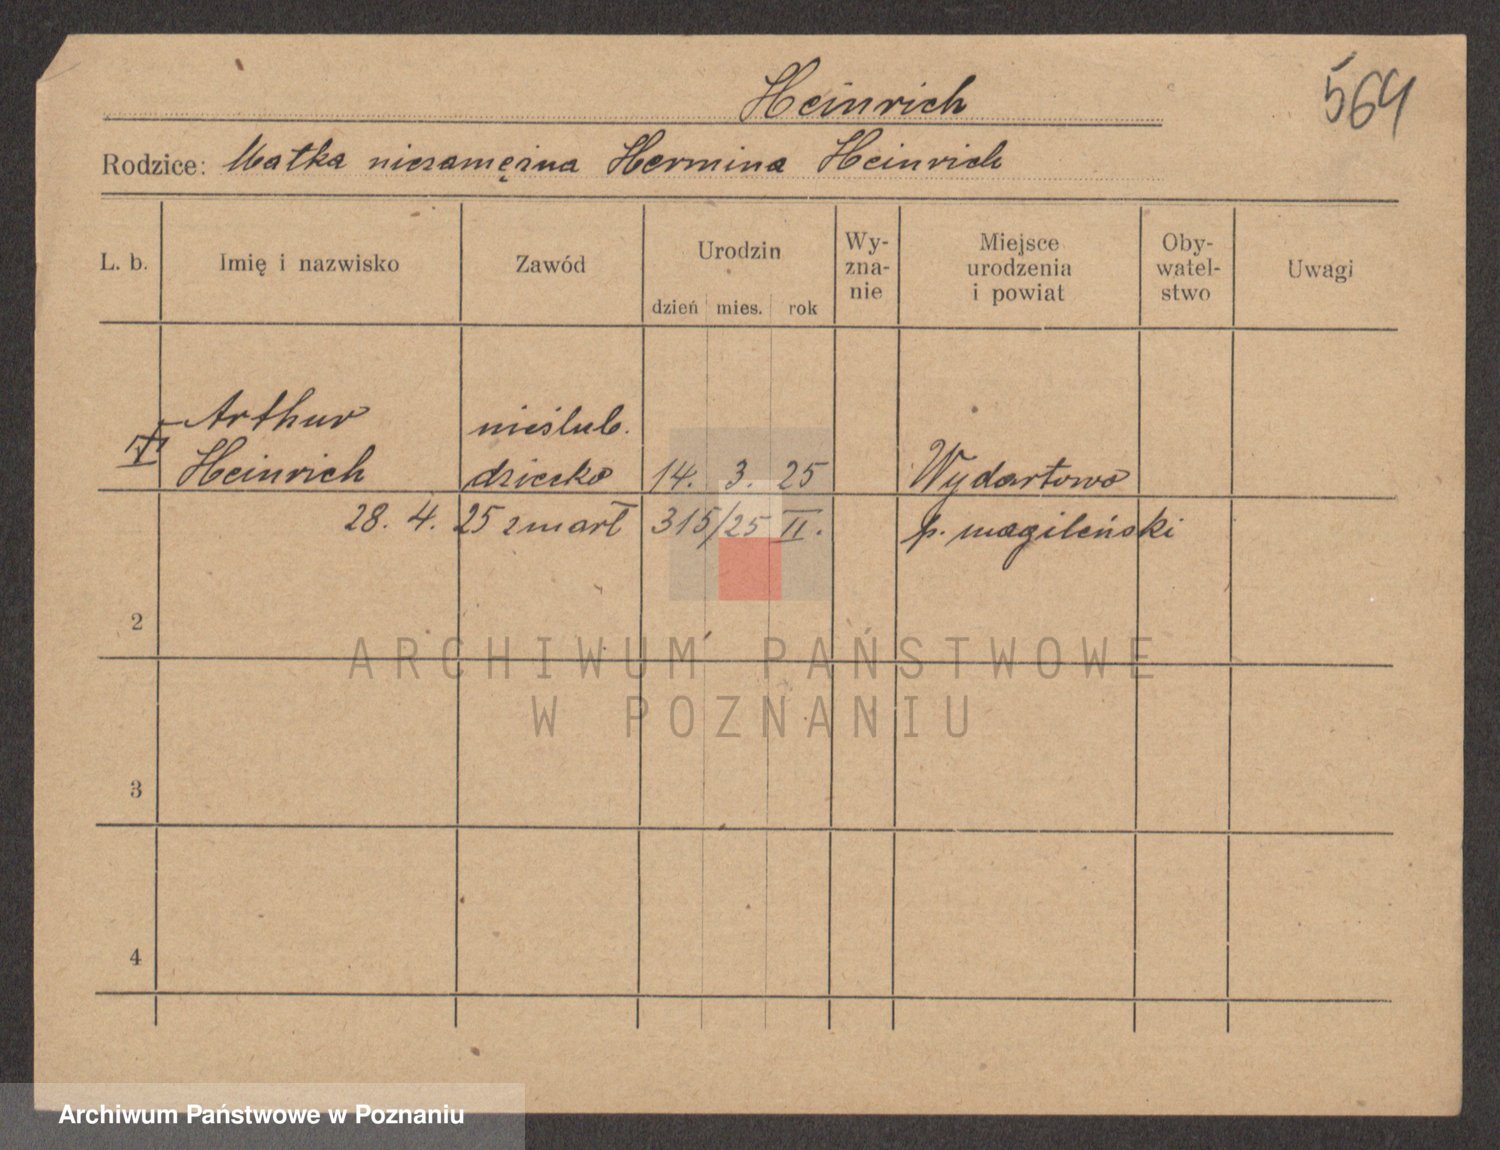 Heinrich
564
Rodzice: Matka niezamężna Hermina Heinrich
L. b.
Imię i nazwisko
Zawód
Urodzin
dzień mies. rok
Wy-
zna-
nie
Miejsce
urodzenia
i powiat
Oby-
watel-
stwo
Uwagi
Arthur nieślub.
Heinrich dziecko 14. 3. 25 Wydartowo
28. 4. 25 zmarł 315/25 II. p. mogileński
2
3
4
ARCHIWUM PAŃSTWOWE
W POZNANIU
Archiwum Państwowe w Poznaniu